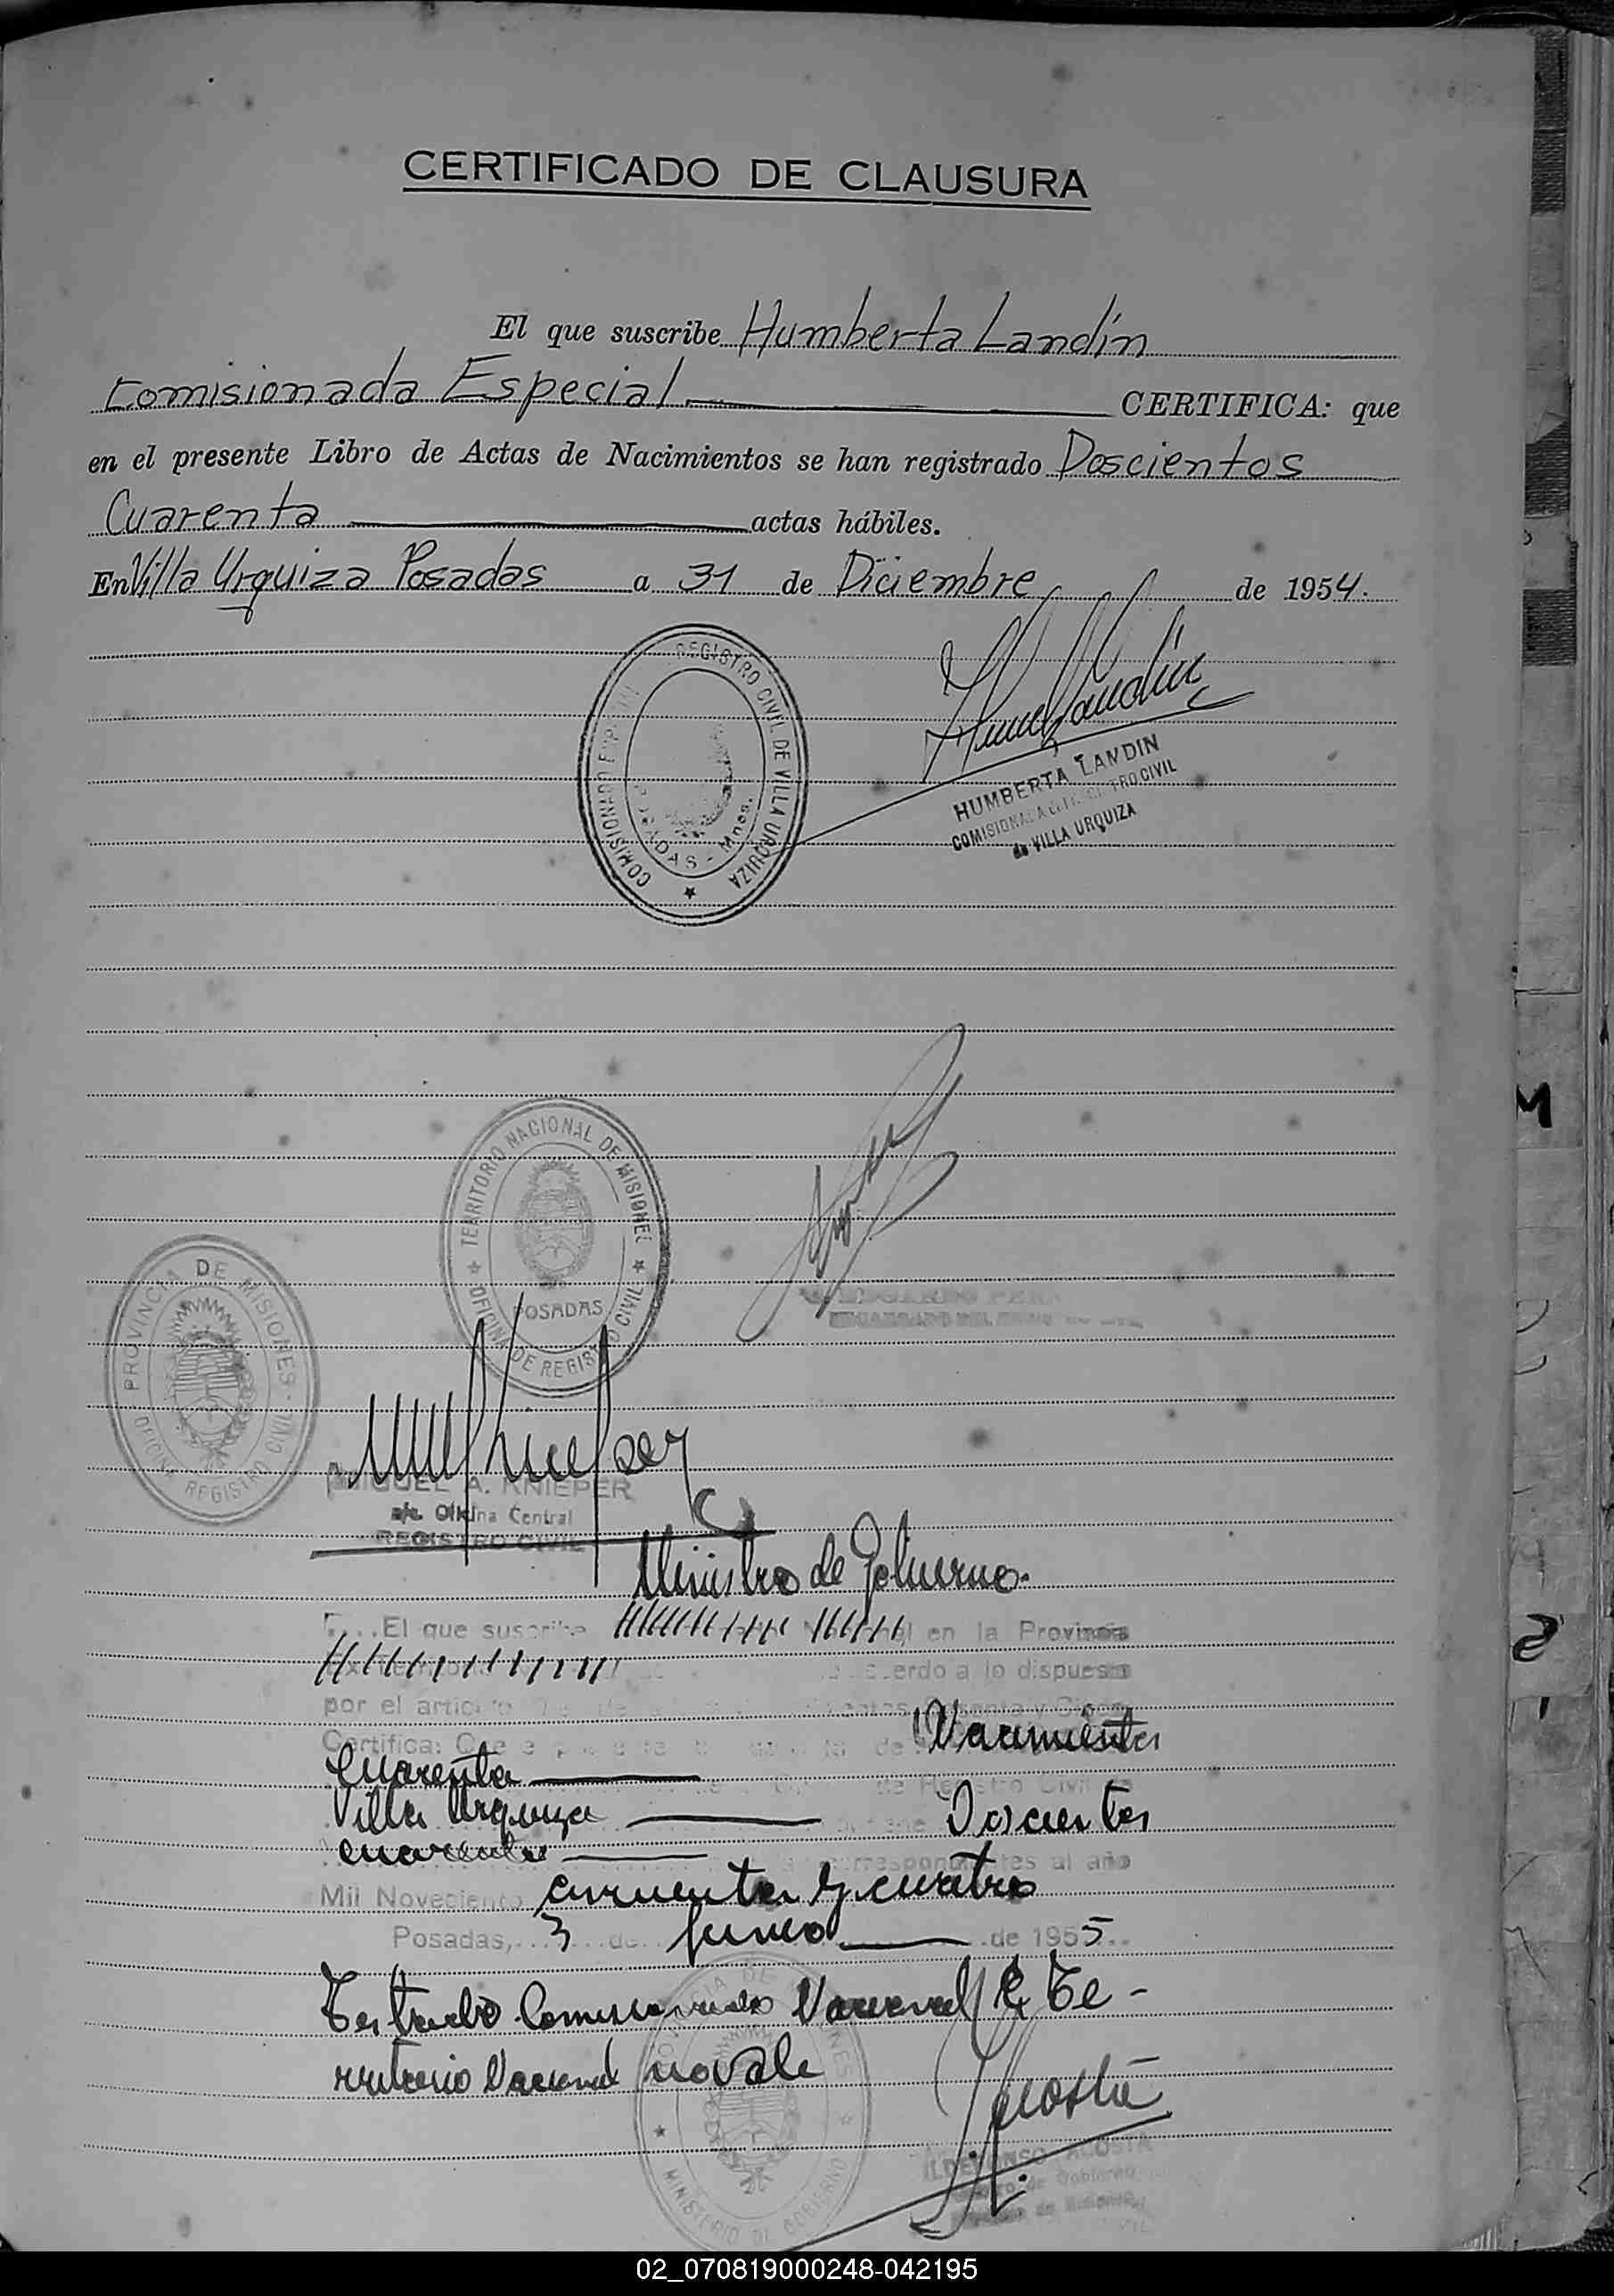 CERTIFICADO DE CLAUSURA
El que suscribe Humberta Landín
Comisionada Especial CERTIFICA: que
en el presente Libro de Actas de Nacimientos se han registrado Doscientos
Cuarenta actas hábiles.
En Villa Urquiza Posadas a 31 de Diciembre de 1954.
REGISTRO CIVIL DE VILLA URQUIZA
POSADAS - Mnes.
HUMBERTA LANDIN
de VILLA URQUIZA
TERRITORIO NACIONAL DE MISIONES
OFICINA DE REGISTRO CIVIL
POSADAS
PROVINCIA DE MISIONES
OFICINA REGISTRO CIVIL
MIGUEL A. KNIEPER
a/c. Oficina Central
REGISTRO CIVIL
Ministro de Gobierno.
El que suscribe en la Provincia
acuerdo a lo dispuesto
por el articulo
Certifica: Nacimientos
Cuarenta
Villa Urquiza Doscientos
cuarenta correspondientes al año
Mil Novecientos cincuenta y cuatro
Posadas, 3 de Junio de 1955
Testado Comisionado Nacional y Te-
rritorio Nacional no vale
Acosta
MINISTERIO DE GOBIERNO
ILDEFONSO ACOSTA
02_070819000248-042195